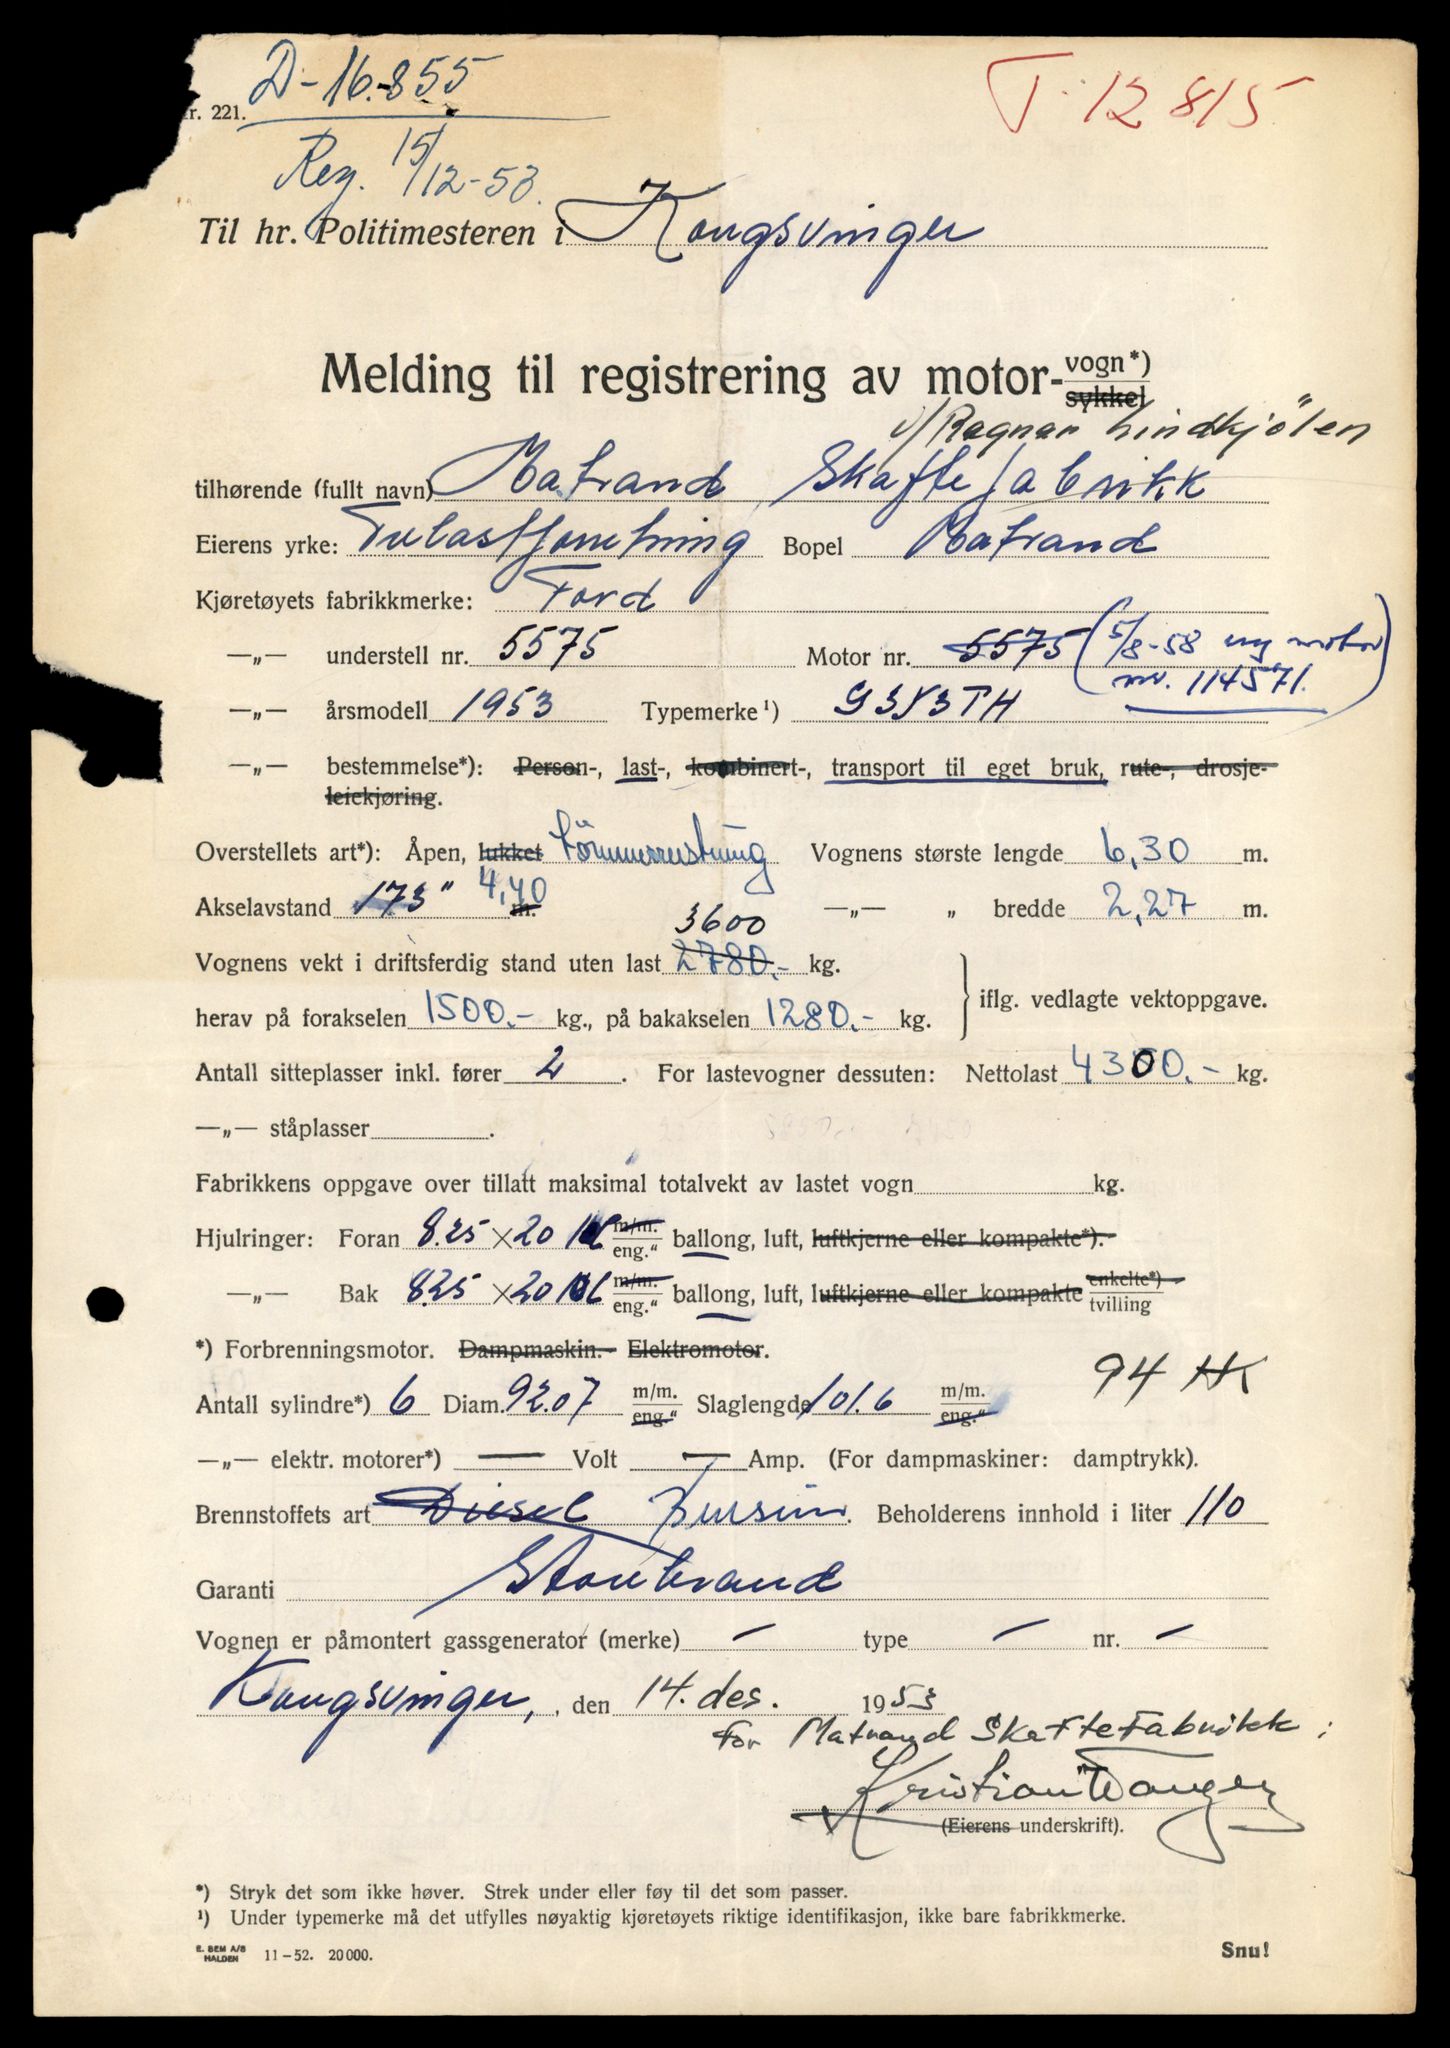 D-16.855
T-12815
r. 221.
Reg. 15/12-53.
Til hr. Politimesteren i Kongsvinger
Melding til registrering av motor-vogn*)
sykkel
v/Ragnar Lindkjölen
tilhørende (fullt navn) Matrand Skaftefabrikk
Eierens yrke: Bopel Matrand
Kjøretøyets fabrikkmerke: Ford
—„— understell nr. 5575 Motor nr. 5575 (5/8-58 ny motor
nr. 114571.)
—„— årsmodell 1953 Typemerke¹)
—„— bestemmelse*): Person-, last-, kombinert-, transport til eget bruk, rute-, drosje-
leiekjøring.
Overstellets art*): Åpen, lukket tömmerrustning Vognens største lengde 6,30 m.
Akselavstand 173" 4,40 m. —„— „ bredde 2,27 m.
3600
Vognens vekt i driftsferdig stand uten last 2780.- kg.
herav på forakselen 1500.- kg., på bakakselen 1280.- kg. } iflg. vedlagte vektoppgave.
Antall sitteplasser inkl. fører 2. For lastevogner dessuten: Nettolast 4300.- kg.
—„— ståplasser .
Fabrikkens oppgave over tillatt maksimal totalvekt av lastet vogn kg.
Hjulringer: Foran 8.25 x 20 m/m. eng." ballong, luft, luftkjerne eller kompakte*).
—„— Bak 825 x 20 m/m. eng." ballong, luft, luftkjerne eller kompakte enkelte*) tvilling
*) Forbrenningsmotor. Dampmaskin.- Elektromotor.
94 HK
Antall sylindre*) 6 Diam. 92.07 m/m. eng." Slaglengde 101.6 m/m. eng."
—„— elektr. motorer*) — Volt — Amp. (For dampmaskiner: damptrykk).
Brennstoffets art Diesel Bensin. Beholderens innhold i liter 110
Garanti Storebrand
Vognen er påmontert gassgenerator (merke) - type - nr. -
Kongsvinger, , den 14. des. 1953
For Matrand Skaftefabrikk:
Kristian Wangen
(Eierens underskrift).
*) Stryk det som ikke høver. Strek under eller føy til det som passer.
¹) Under typemerke må det utfylles nøyaktig kjøretøyets riktige identifikasjon, ikke bare fabrikkmerke.
E. BEM A/S
HALDEN 11-52. 20000.
Snu!